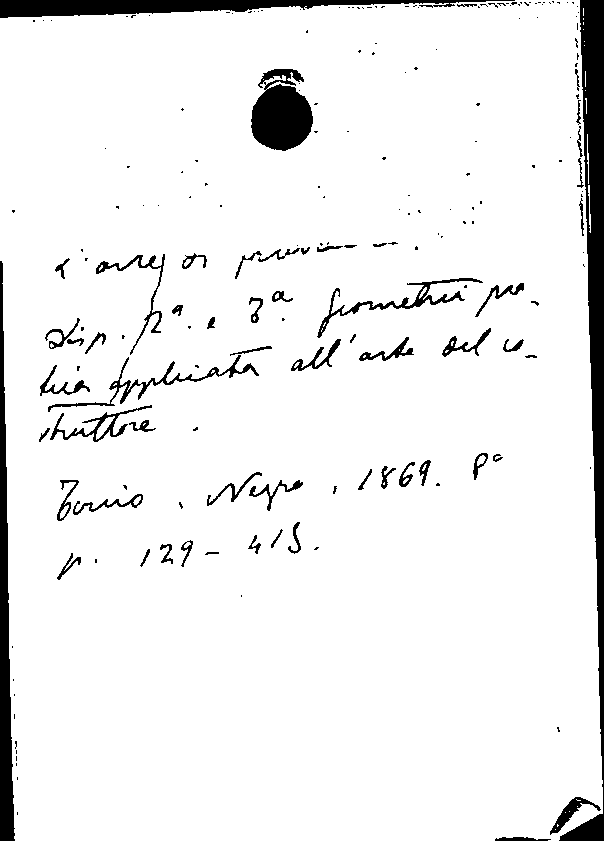 L'arte di
Disp. 2ª. e 3ª. Geometria pra-
tica applicata all'arte del co-
struttore.
Torino, Negro, 1869. 8º
p. 129-415.